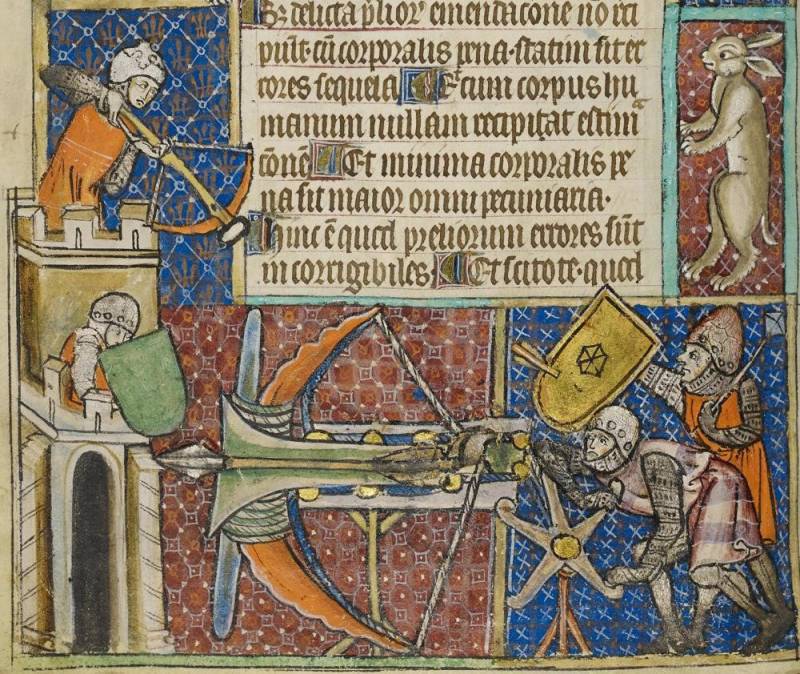 delicta p̄lior' emendacōne nō reci
piūt cū corporalis pena statim sit er
rores sequela Et cum corpus hu
manum nullam recipiat estimᵃ
cōne Et minima corporalis pe
na sit maior omni pecuniaria.
hinc ē quod preliorum errores sūt
in corrigibiles Et scitote quod